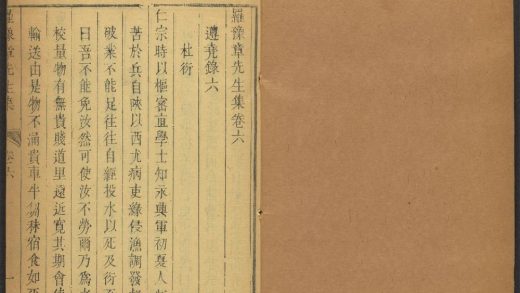 羅豫章先生集卷六
遵堯錄六
杜衍
仁宗時以樞密直學士知永興軍初夏人
苦於兵自陝以西尤病吏緣侵漁調發
破業不能足往往自經投水以死及衍至
曰吾不能免汝然可使汝不勞爾乃爲之
校量物有無貴賤道里遠近寬其期會使
輸送由是物不滿貴車牛芻秣宿食如平
羅豫章先生集
卷六
一